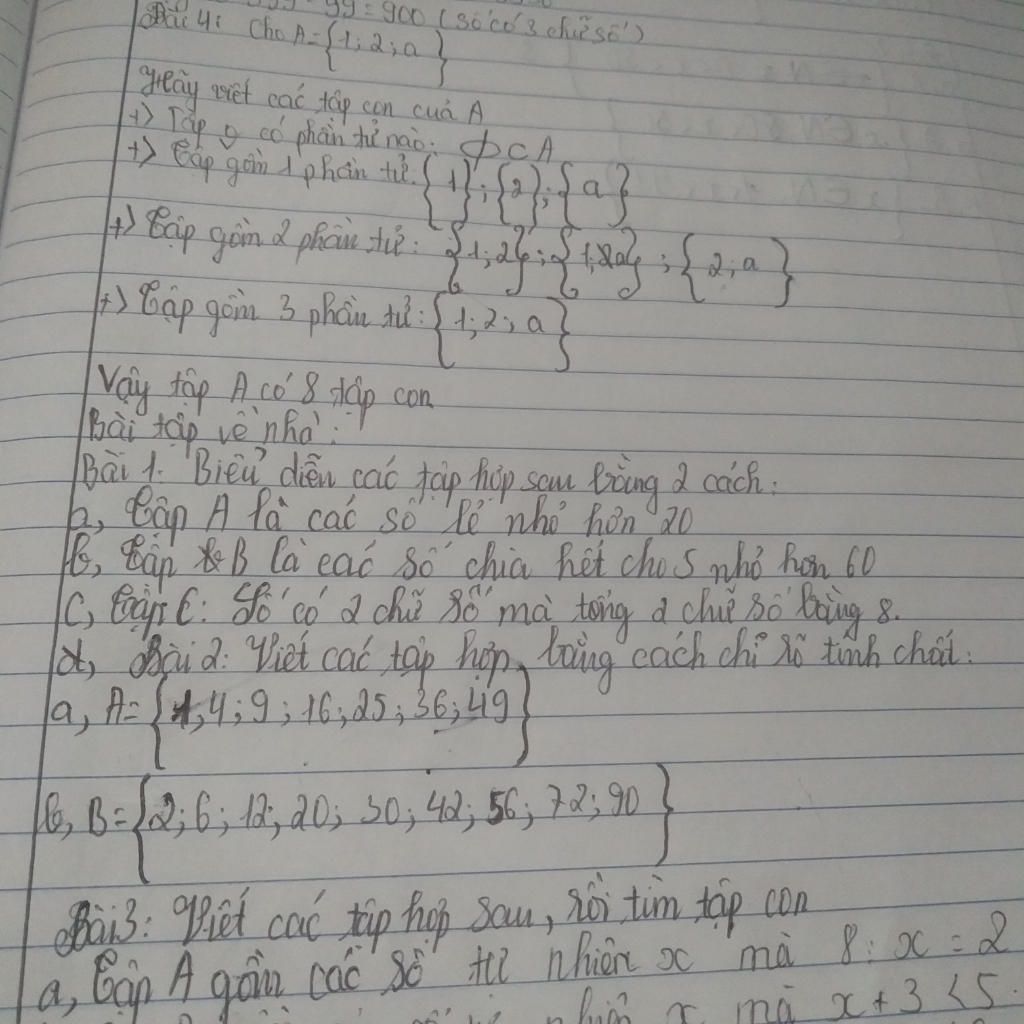 99 = 900 (số có 3 chữ số)
Bài 4: Cho A = {1; 2; a}
Hãy viết các tập con của A
+> Tập 0 có phần tử nào: ϕ ⊂ A
+> Tập gồm 1 phần tử: {1}; {2}; {a}
+> Tập gồm 2 phần tử: {1; 2}; {1; a}; {2; a}
+> Tập gồm 3 phần tử: {1; 2; a}
Vậy tập A có 8 tập con
Bài tập về nhà:
Bài 1. Biểu diễn các tập hợp sau bằng 2 cách:
a, Tập A là các số lẻ nhỏ hơn 20
b, Tập B là các số chia hết cho 5 nhỏ hơn 60
C, Tập C: Số có 2 chữ số mà tổng 2 chữ số bằng 8.
Bài 2: Viết các tập hợp bằng cách chỉ rõ tính chất:
a, A = {1; 4; 9; 16; 25; 36; 49}
b, B = {2; 6; 12; 20; 30; 42; 56; 72; 90}
Bài 3: Viết các tập hợp sau, rồi tìm tập con
a, Tập A gồm các số tự nhiên x mà 8 : x = 2
nhiên x mà x + 3 < 5.